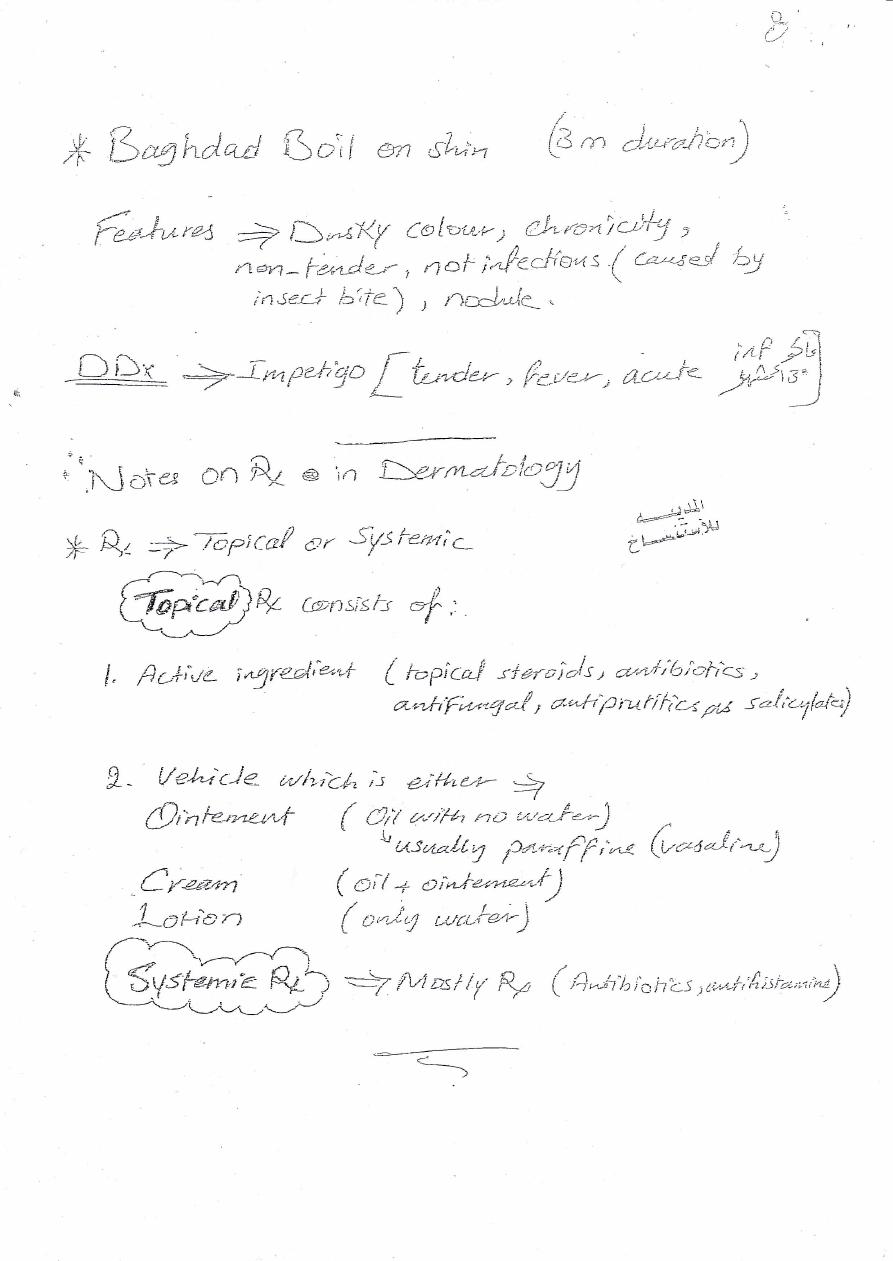 8
* Baghdad Boil on skin (3 m duration)
Features ⇒ Dusky colour, chronicity,
non-tender, not infectious (caused by
insect bite), nodule.
DDx ⇒ Impetigo [tender, fever, acute inf]
Notes on Rx in Dermatology
* Rx ⇒ Topical or Systemic
للأستنساخ
Topical Rx consists of:
1. Active ingredient (topical steroids, antibiotics,
antifungal, antipruritics as salicylates)
2. Vehicle which is either ⇒
Ointement (Oil with no water)
↳ usually paraffine (vasaline)
Cream (oil + ointement)
Lotion (only water)
Systemic Rx ⇒ Mostly Rx (Antibiotics, antihistamine)